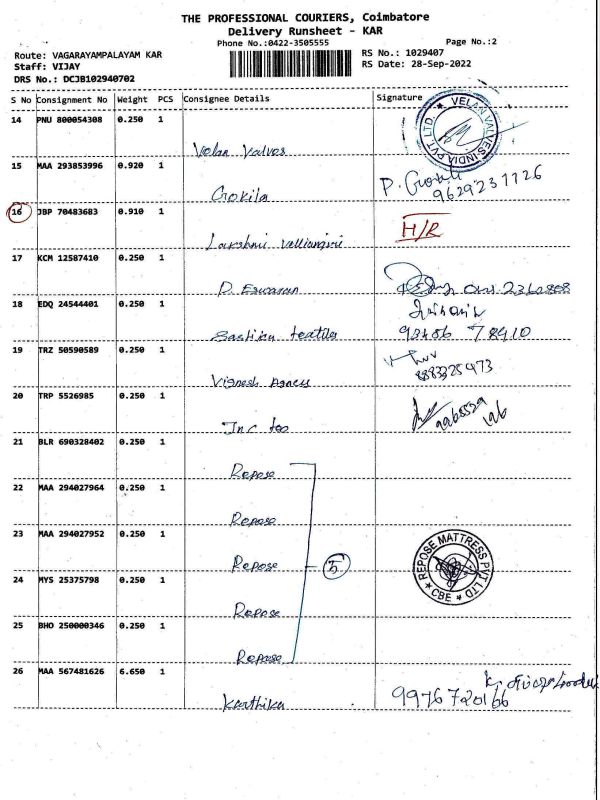 THE PROFESSIONAL COURIERS, Coimbatore
Delivery Runsheet - KAR
Phone No.:0422-3505555 Page No.:2
Route: VAGARAYAMPALAYAM KAR RS No.: 1029407
Staff: VIJAY RS Date: 28-Sep-2022
DRS No.: DCJB102940702
S No Consignment No Weight PCS Consignee Details Signature
14 PNU 800054308 0.250 1
Velan Valves VELAN VALVES INDIA PVT LTD.
15 MAA 293853996 0.920 1
Gokila P. Gokila 9629231126
16 JBP 70483683 0.910 1
Lakshmi H/R
17 KCM 12587410 0.250 1
D. Eswaran
18 EDQ 24544401 0.250 1
textile 78910
19 TRZ 50590589 0.250 1
Vignesh 8883325973
20 TRP 5526985 0.250 1
21 BLR 690328402 0.250 1
Repose
22 MAA 294027964 0.250 1
Repose
23 MAA 294027952 0.250 1
Repose 5 REPOSE MATTRESS PVT LTD
CBE
24 MYS 25375798 0.250 1
Repose
25 BHO 250000346 0.250 1
Repose
26 MAA 567481626 6.650 1
Karthika 9976720166